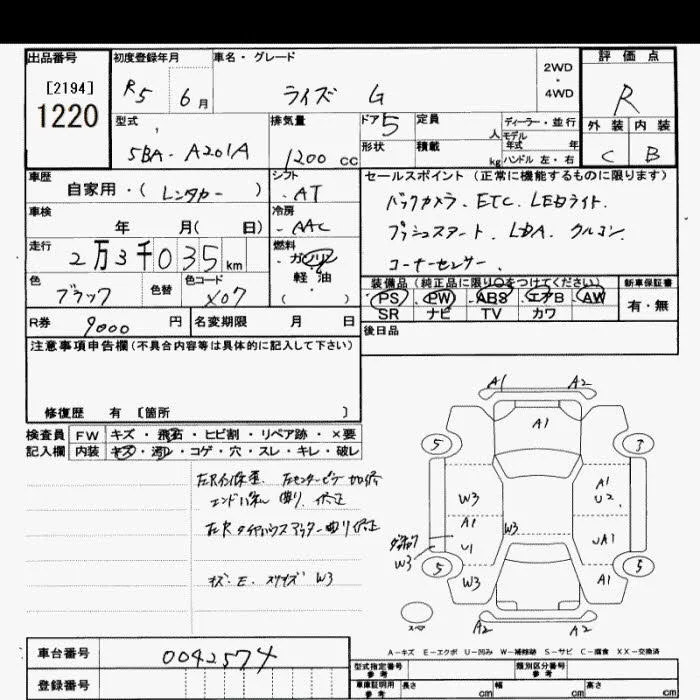 出品番号
[2194]
1220
初度登録年月
R5 6月
車名・グレード
ライズ G
2WD
・
4WD
評価点
R
外装 内装
C B
型式
5BA-A201A
排気量
1200 cc
ドア 5
形状
定員 人
積載 kg
ディーラー・並行
モデル年式 年
ハンドル 左・右
車歴
自家用・( レンタカー )
シフト
AT
車検
年 月( 日)
冷房
AAC
走行
2万3千035 km
燃料
ガソリン
軽油
( )
色
ブラック
色替
色コード
X07
R券 9000 円
名変期限 月 日
セールスポイント(正常に機能するものに限ります)
バックカメラ. ETC. LEDライト.
プッシュスタート. LDA. クルコン.
コーナーセンサー.
装備品(純正品に限り○をつけてください)
PS PW ABS エアB AW
SR ナビ TV カワ
新車保証書
有・無
後日品
注意事項申告欄(不具合内容等は具体的に記入して下さい)
修復歴 有 〔箇所 〕
検査員記入欄
FW キズ・飛石・ヒビ割・リペア跡・×要
内装 キズ・汚レ・コゲ・穴・スレ・キレ・破レ
エンドパネル 曲り. 修正
キズ. E. W3
A1 A2
A1
5 7
W3
A1
U2
A1
U1
W3
UA1
W3
5 5
W3
A1
スペア
A2 A2
A-キズ E-エクボ U-凹み W-補修跡 S-サビ C-腐食 XX-交換済
車台番号 0042574
登録番号
型式指定番号 参考
類別区分番号 参考
車庫証明用 参考
長さ cm
幅 cm
高さ cm